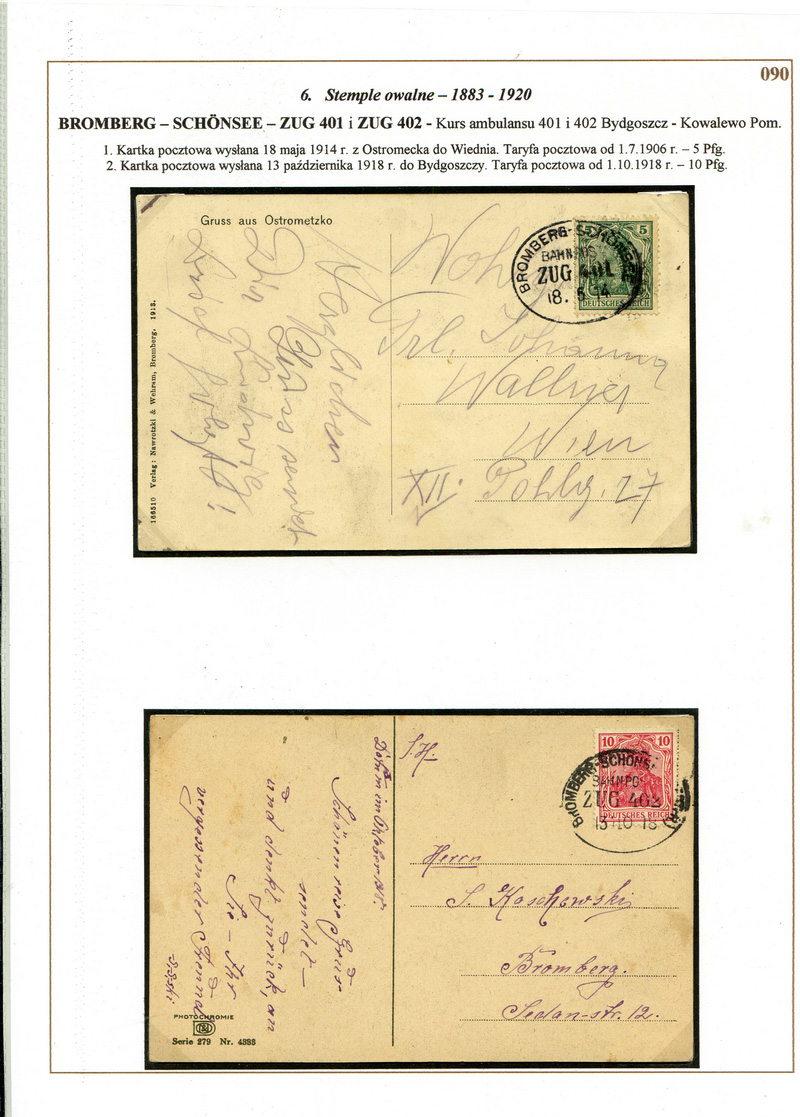 090
6. Stemple owalne – 1883 - 1920
BROMBERG – SCHÖNSEE – ZUG 401 i ZUG 402 - Kurs ambulansu 401 i 402 Bydgoszcz - Kowalewo Pom.
1. Kartka pocztowa wysłana 18 maja 1914 r. z Ostromecka do Wiednia. Taryfa pocztowa od 1.7.1906 r. – 5 Pfg.
2. Kartka pocztowa wysłana 13 października 1918 r. do Bydgoszczy. Taryfa pocztowa od 1.10.1918 r. – 10 Pfg.
Gruss aus Ostrometzko
166510 Verlag: Nawrotzki & Wehram, Bromberg. 1913.
Herzlichen
Gruss sendet
Dir
BROMBERG-SCHÖNSEE
BAHNPOS
ZUG 401
18. 5 14
5
DEUTSCHES REICH
Frl. Johanna
Wallner
Wien
XII.
27
S.H.
Herrn
S. Koschowski
Bromberg.
Sedan-str. 12.
10
DEUTSCHES REICH
BROMBERG-SCHÖNS
BAHNPO
ZUG 402
13 10 18
im Oktober 18.
Schönen
sendet –
und denkt zurück, an
Sie – Ihr
PHOTOCHROMIE
Serie 279 Nr. 4888